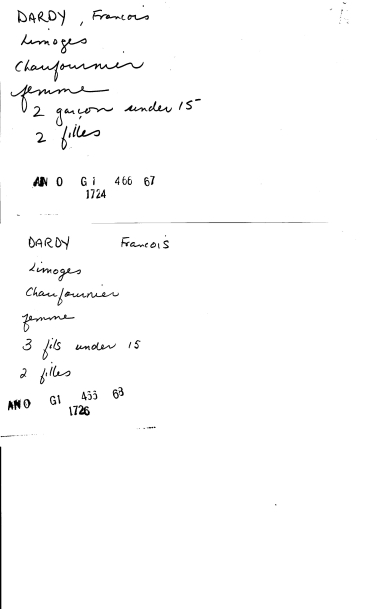 DARDY, Francois
Limoges
Chaufournier
femme
2 garçon under 15
2 filles
AN O G1 466 67
1724
DARDY Francois
Limoges
Chaufournier
femme
3 fils under 15
2 filles
AN O G1 433 63
1726